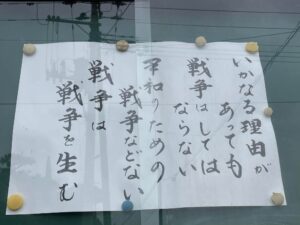 いかなる理由が
あっても
戦争はしては
ならない
平和のための
戦争などない
戦争は
戦争を生む